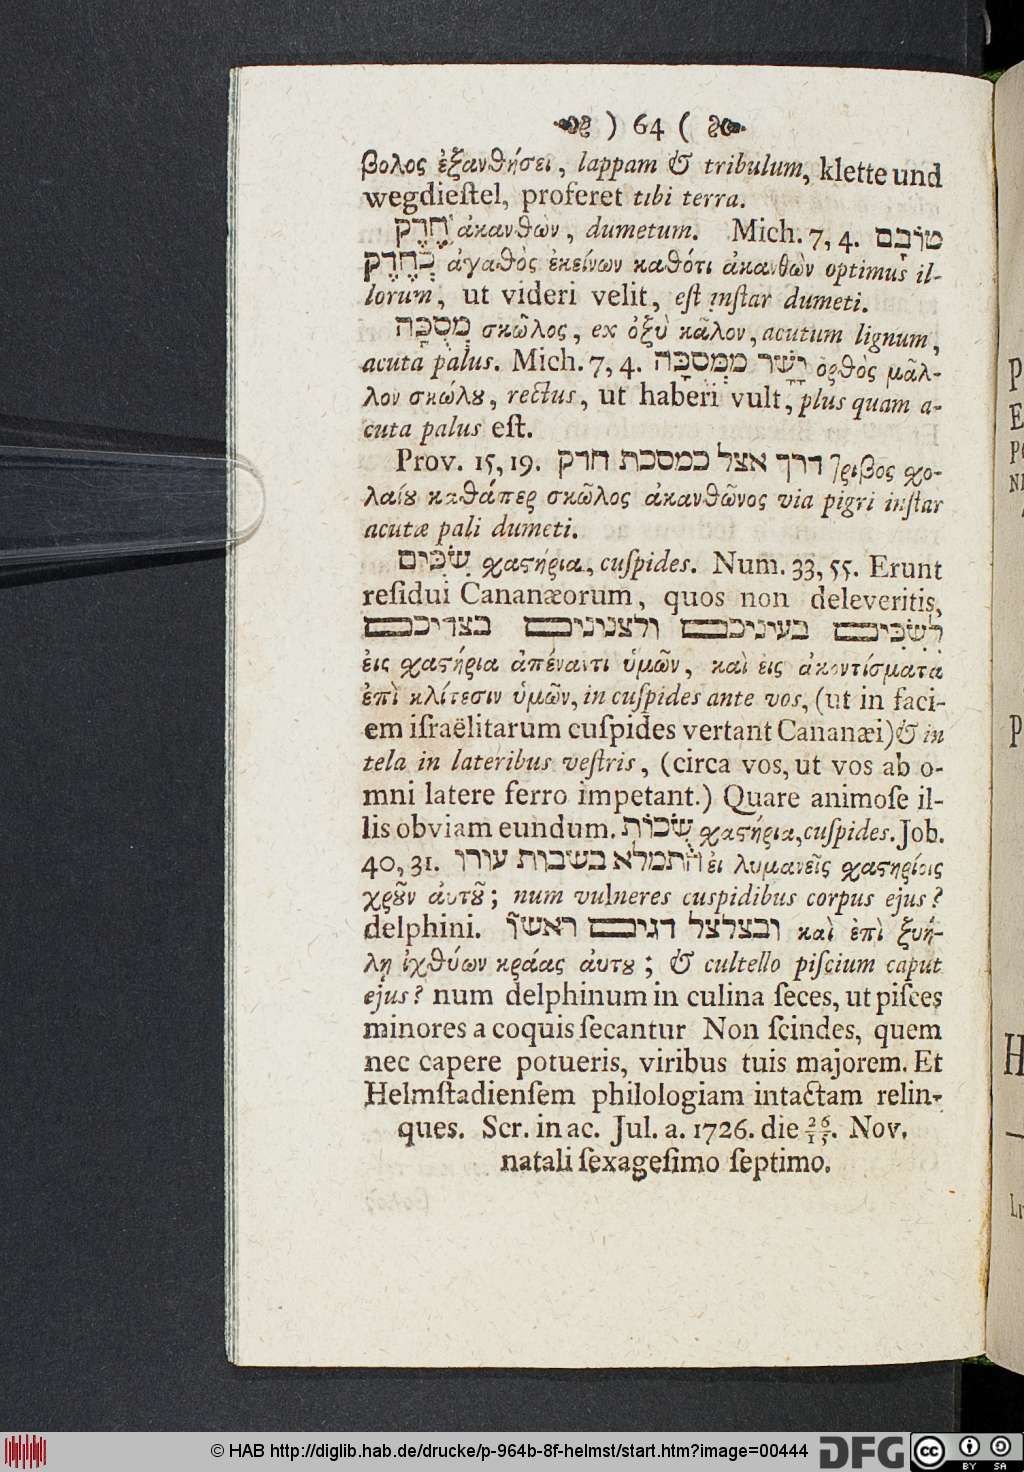 ) 64 (
βολος ἐξανθήσει, lappam & tribulum, klette und
wegdieſtel, proferet tibi terra.
חֶרֶק ἀκανθὼν, dumetum. Mich. 7, 4. טוֹבָם
כְּחֶדֶק ἀγαθὸς ἐκείνων καθότι ἀκανθὼν optimus il-
lorum, ut videri velit, eſt inſtar dumeti.
מְסֻכָּה σκῶλος, ex ὀξὺ κᾶλον, acutum lignum,
acuta palus. Mich. 7, 4. יָשָׁר מִמְּסֻכָּה ὀρθὸς μᾶλ-
λον σκώλου, rectus, ut haberi vult, plus quam a-
cuta palus eſt.
Prov. 15, 19. דרך אצל כמסכת חדק τρίβος χο-
λαίου καθάπερ σκῶλος ἀκανθῶνος via pigri inſtar
acutæ pali dumeti.
שִׂכִּים χαστήρια, cuſpides. Num. 33, 55. Erunt
reſidui Cananæorum, quos non deleveritis,
לְשִׂכִּים בעיניכם ולצנינים בצדיכם
ἐις χαστήρια ἀπέναντι ὑμῶν, καὶ ἐις ἀκοντίσματα
ἐπὶ κλίτεσιν ὑμῶν, in cuſpides ante vos, (ut in faci-
em iſraëlitarum cuſpides vertant Cananæi) & in
tela in lateribus veſtris, (circa vos, ut vos ab o-
mni latere ferro impetant.) Quare animoſe il-
lis obviam eundum. שֻׂכּוֹת χαστήρια, cuſpides. Job.
40, 31. התמלא בשכות עורו ἐι λυμανεῖς χαστηρίοις
χροῦν ἀυτοῦ; num vulneres cuspidibus corpus ejus?
delphini. ובצלצל דגים ראשו καὶ ἐπὶ ξυή-
λῃ ἰχθύων κράας ἀυτου; & cultello piſcium caput
ejus? num delphinum in culina ſeces, ut piſces
minores a coquis ſecantur Non ſcindes, quem
nec capere potueris, viribus tuis majorem. Et
Helmſtadienſem philologiam intactam relin-
ques. Scr. in ac. Jul. a. 1726. die 26/15. Nov.
natali ſexageſimo ſeptimo.
© HAB http://diglib.hab.de/drucke/p-964b-8f-helmst/start.htm?image=00444
DFG
cc BY SA